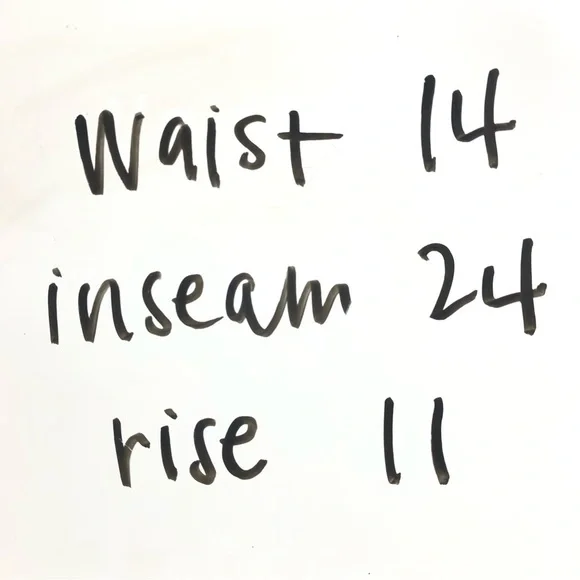 Waist 14
inseam 24
rise 11